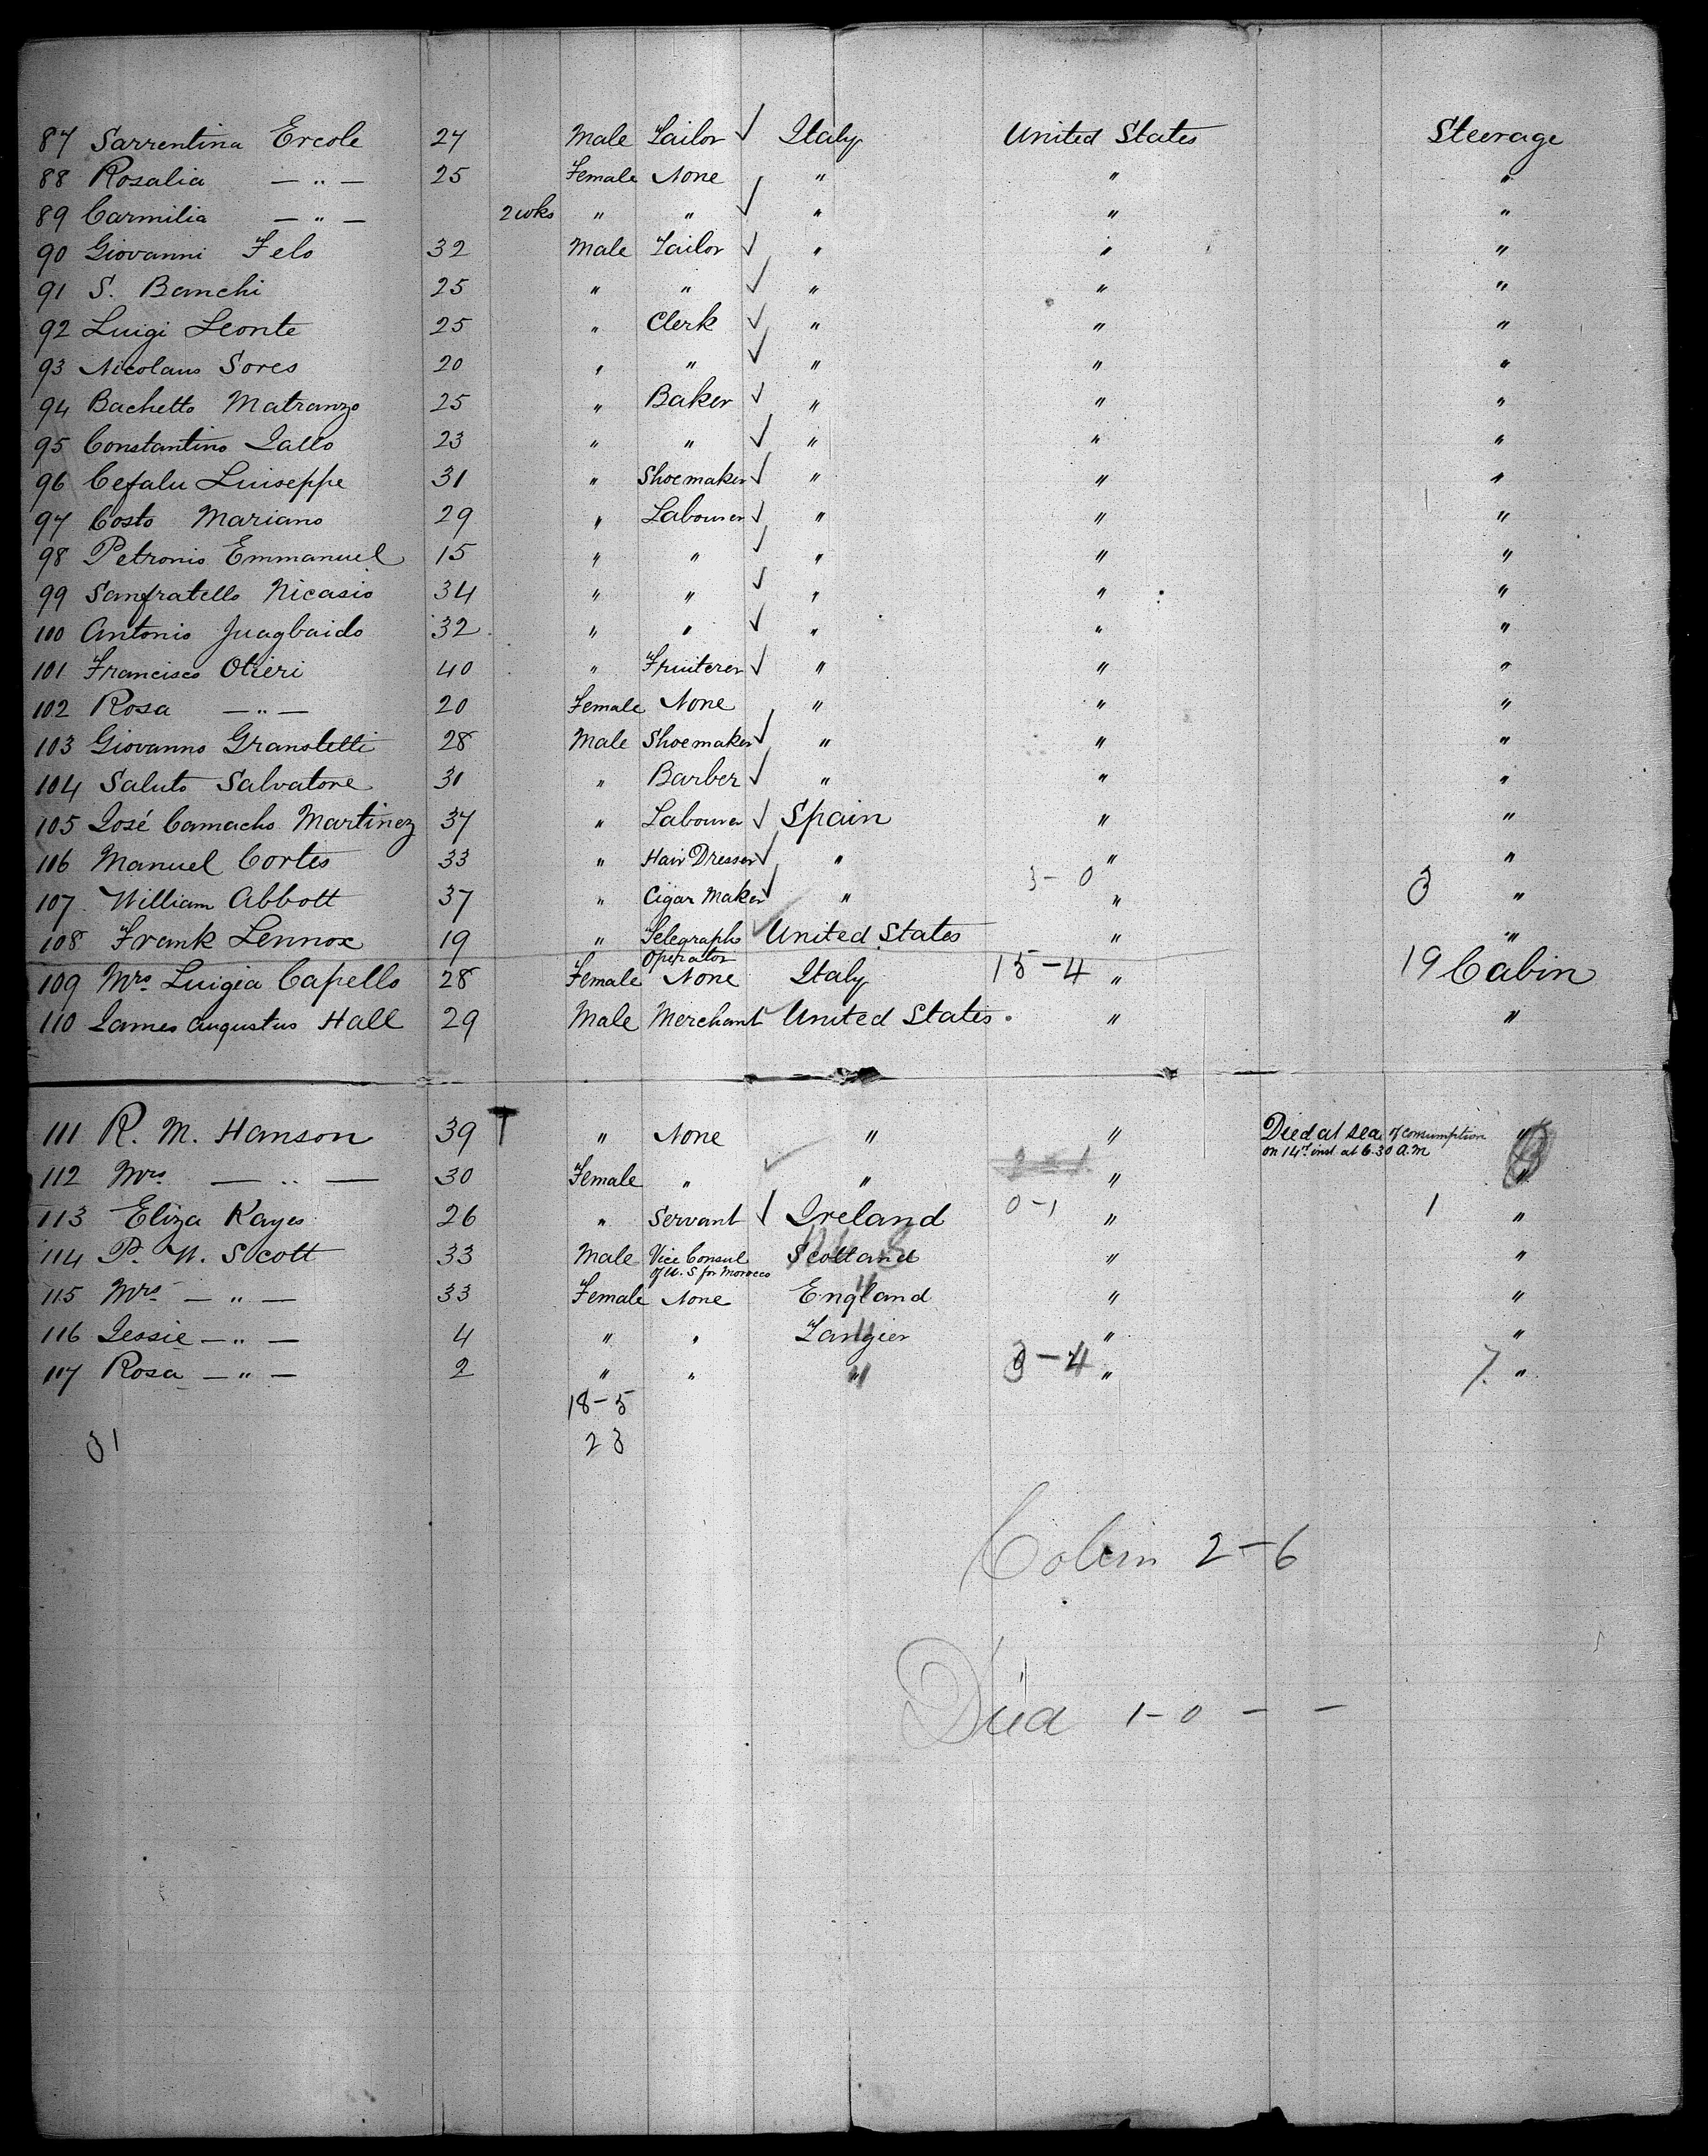 87 Sarrentina Ercole 27 Male Tailor ✓ Italy United States Steerage
88 Rosalia — " — 25 Female None " " "
89 Carmilia — " — 2 wks " " ✓ " " "
90 Giovanni Felo 32 Male Tailor ✓ " " "
91 S. Banchi 25 " " ✓ " " "
92 Luigi Leonte 25 " Clerk ✓ " " "
93 Nicolaus Sores 20 " " ✓ " " "
94 Bachetto Matranzo 25 " Baker ✓ " " "
95 Constantino Lallo 23 " " ✓ " " "
96 Cefalu Luiseppe 31 " Shoemaker ✓ " " "
97 Costo Mariano 29 " Labourer ✓ " " "
98 Petronio Emmanuel 15 " " ✓ " " "
99 Sanfratello Nicasio 34 " " ✓ " " "
100 Antonio Juagbaido 32 " " ✓ " " "
101 Francisco Otieri 40 " Fruiterer ✓ " " "
102 Rosa — " — 20 Female None " " "
103 Giovanno Gransletti 28 Male Shoemaker ✓ " " "
104 Saluto Salvatore 31 " Barber ✓ " " "
105 José Camacho Martinez 37 " Labourer ✓ Spain " "
106 Manuel Cortes 33 " Hair Dresser ✓ " " "
3-0 3
107 William Abbott 37 " Cigar Maker ✓ " " "
108 Frank Lennox 19 " Telegraph Operator ✓ United States " "
15-4 19
109 Mrs. Luigia Capello 28 Female None Italy " Cabin
110 James Augustus Hall 29 Male Merchant ✓ United States. " "
111 R. M. Hanson 39 " None " " Died at sea of consumption "
on 14th inst at 6.30 A.M
112 Mrs. — " — 30 Female " ✓ " " "
0-1 1
113 Eliza Kayes 26 " Servant ✓ Ireland " "
114 P. W. Scott 33 Male Vice Consul of U. S for Morocco Scotland " "
115 Mrs — " — 33 Female None England " "
116 Jessie — " — 4 " " Tangier " "
3-4 7
117 Rosa — " — 2 " " " " "
18-5
31 23
Cabin 2-6
Died 1-0 - -